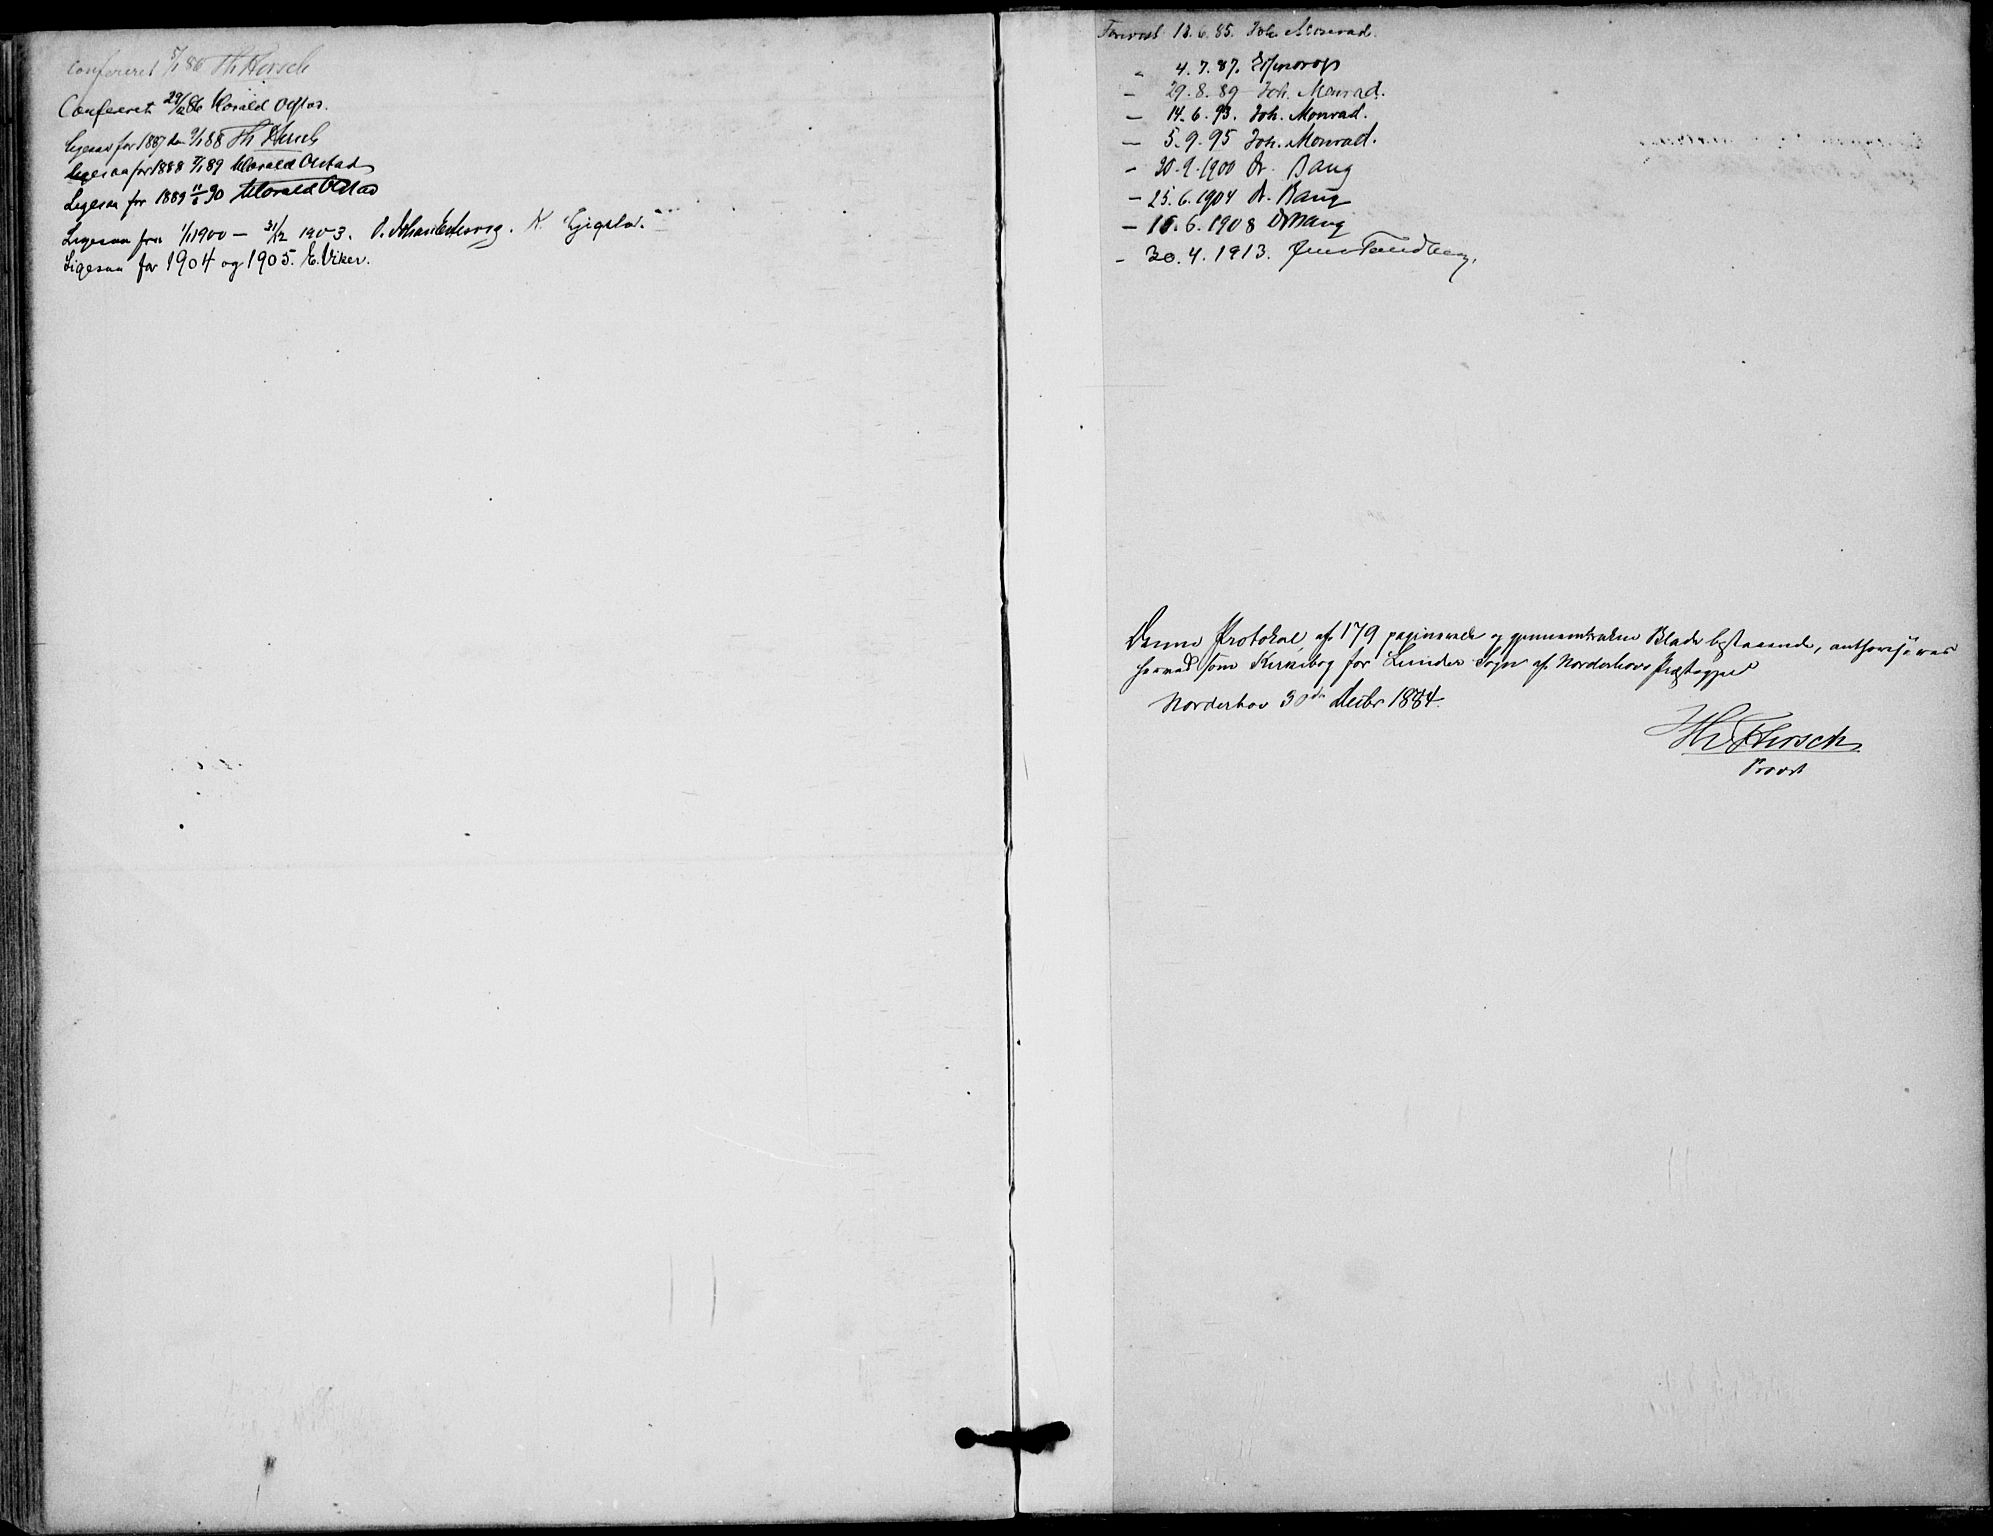 Confereret 5/1 86 Th Hersch
Confereret 29/12 86 Harald Olstad.
Ligesaa for 1887 den 9/1 88 Th Hersch
Ligesaa for 1888 7/1 89 Harald Olstad
Ligesaa for 1889 11/1 90 Harald Olstad
Ligesaa fra 1/1 1900 – 31/12 1903.
Ligesaa for 1904 og 1905. E. Viker.
13.6.85. Joh. Monrad.
" 4.7.87. Essendrop
– 29.8.89 Joh. Monrad.
– 14.6.93. Joh. Monrad.
– 5.9.95 Joh. Monrad.
– 20.9.1900 A. Bang
– 25.6.1904 A. Bang
– 15.6.1908 A Bang
– 30.4.1913. Jens Tandberg.
Denne Protokol, af 179 paginerede og gjennemtrukne Blade bestaaende, authoriseres
herved som Kirkebog for Lunder Sogn af Norderhovs Præstegjeld
Norderhov 30de Decbr 1884.
Th Hersch
Provst